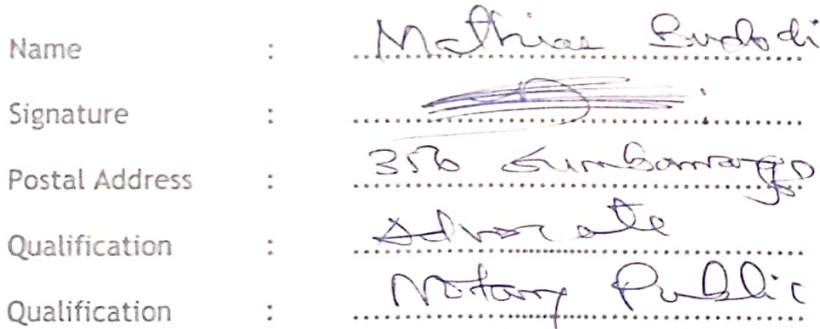 Name : Mathias Budodi
Signature :
Postal Address : 356 Sumbawanga
Qualification : Advocate
Qualification : Notary Public